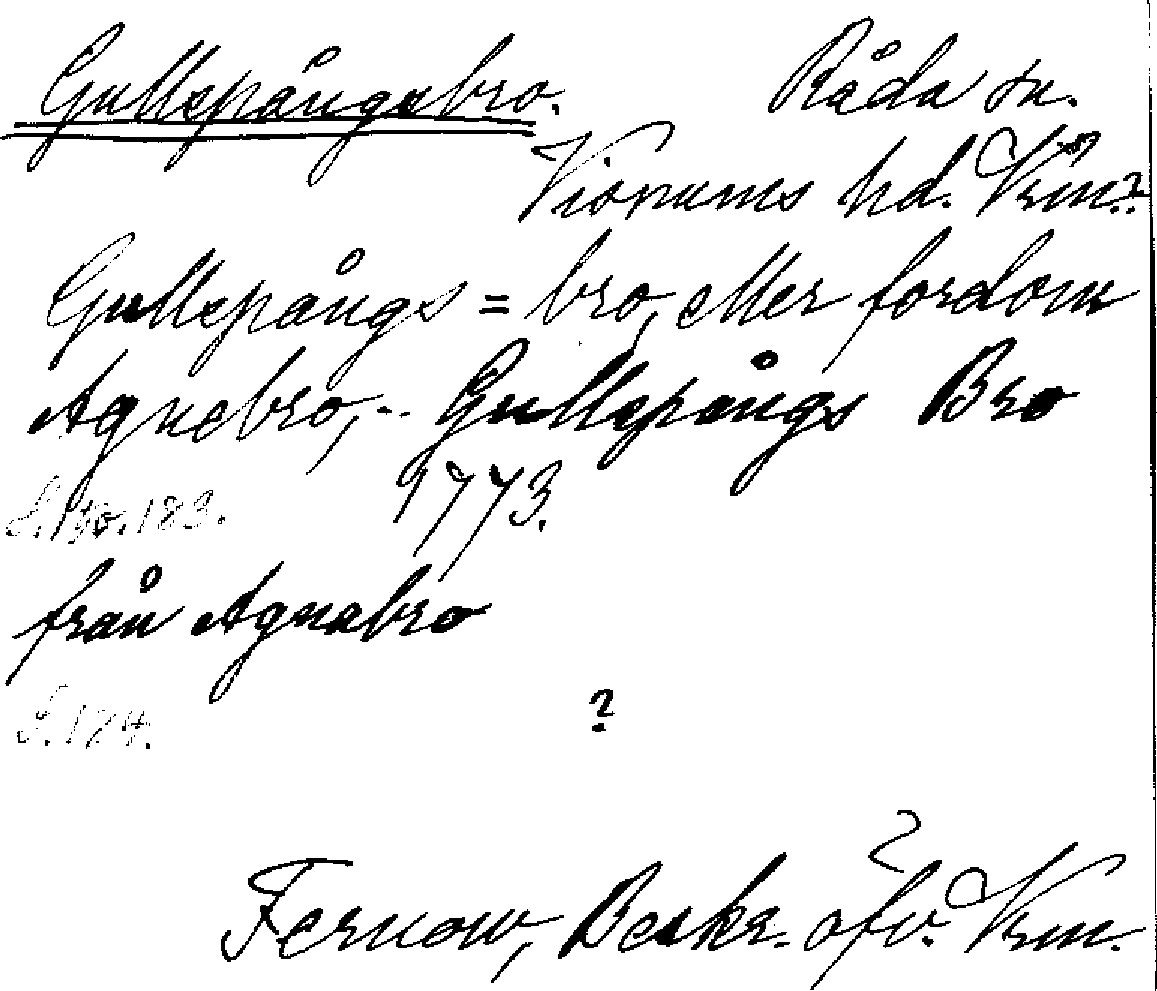 Gullspångsbro. Råda sn.
Visnums hd. Vrm.?
Gullspångs = bro, eller fordom
Agnebro,-- Gullspångs Bro
1773.
från Agnebro
S. 184.
?
Fernow, Beskr. öfv. Vrm.